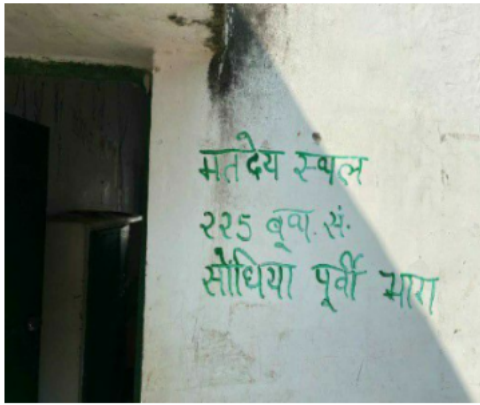 मतदेय स्थल
२२5 बूथ. सं.
सोंधिया पूर्वी भाग